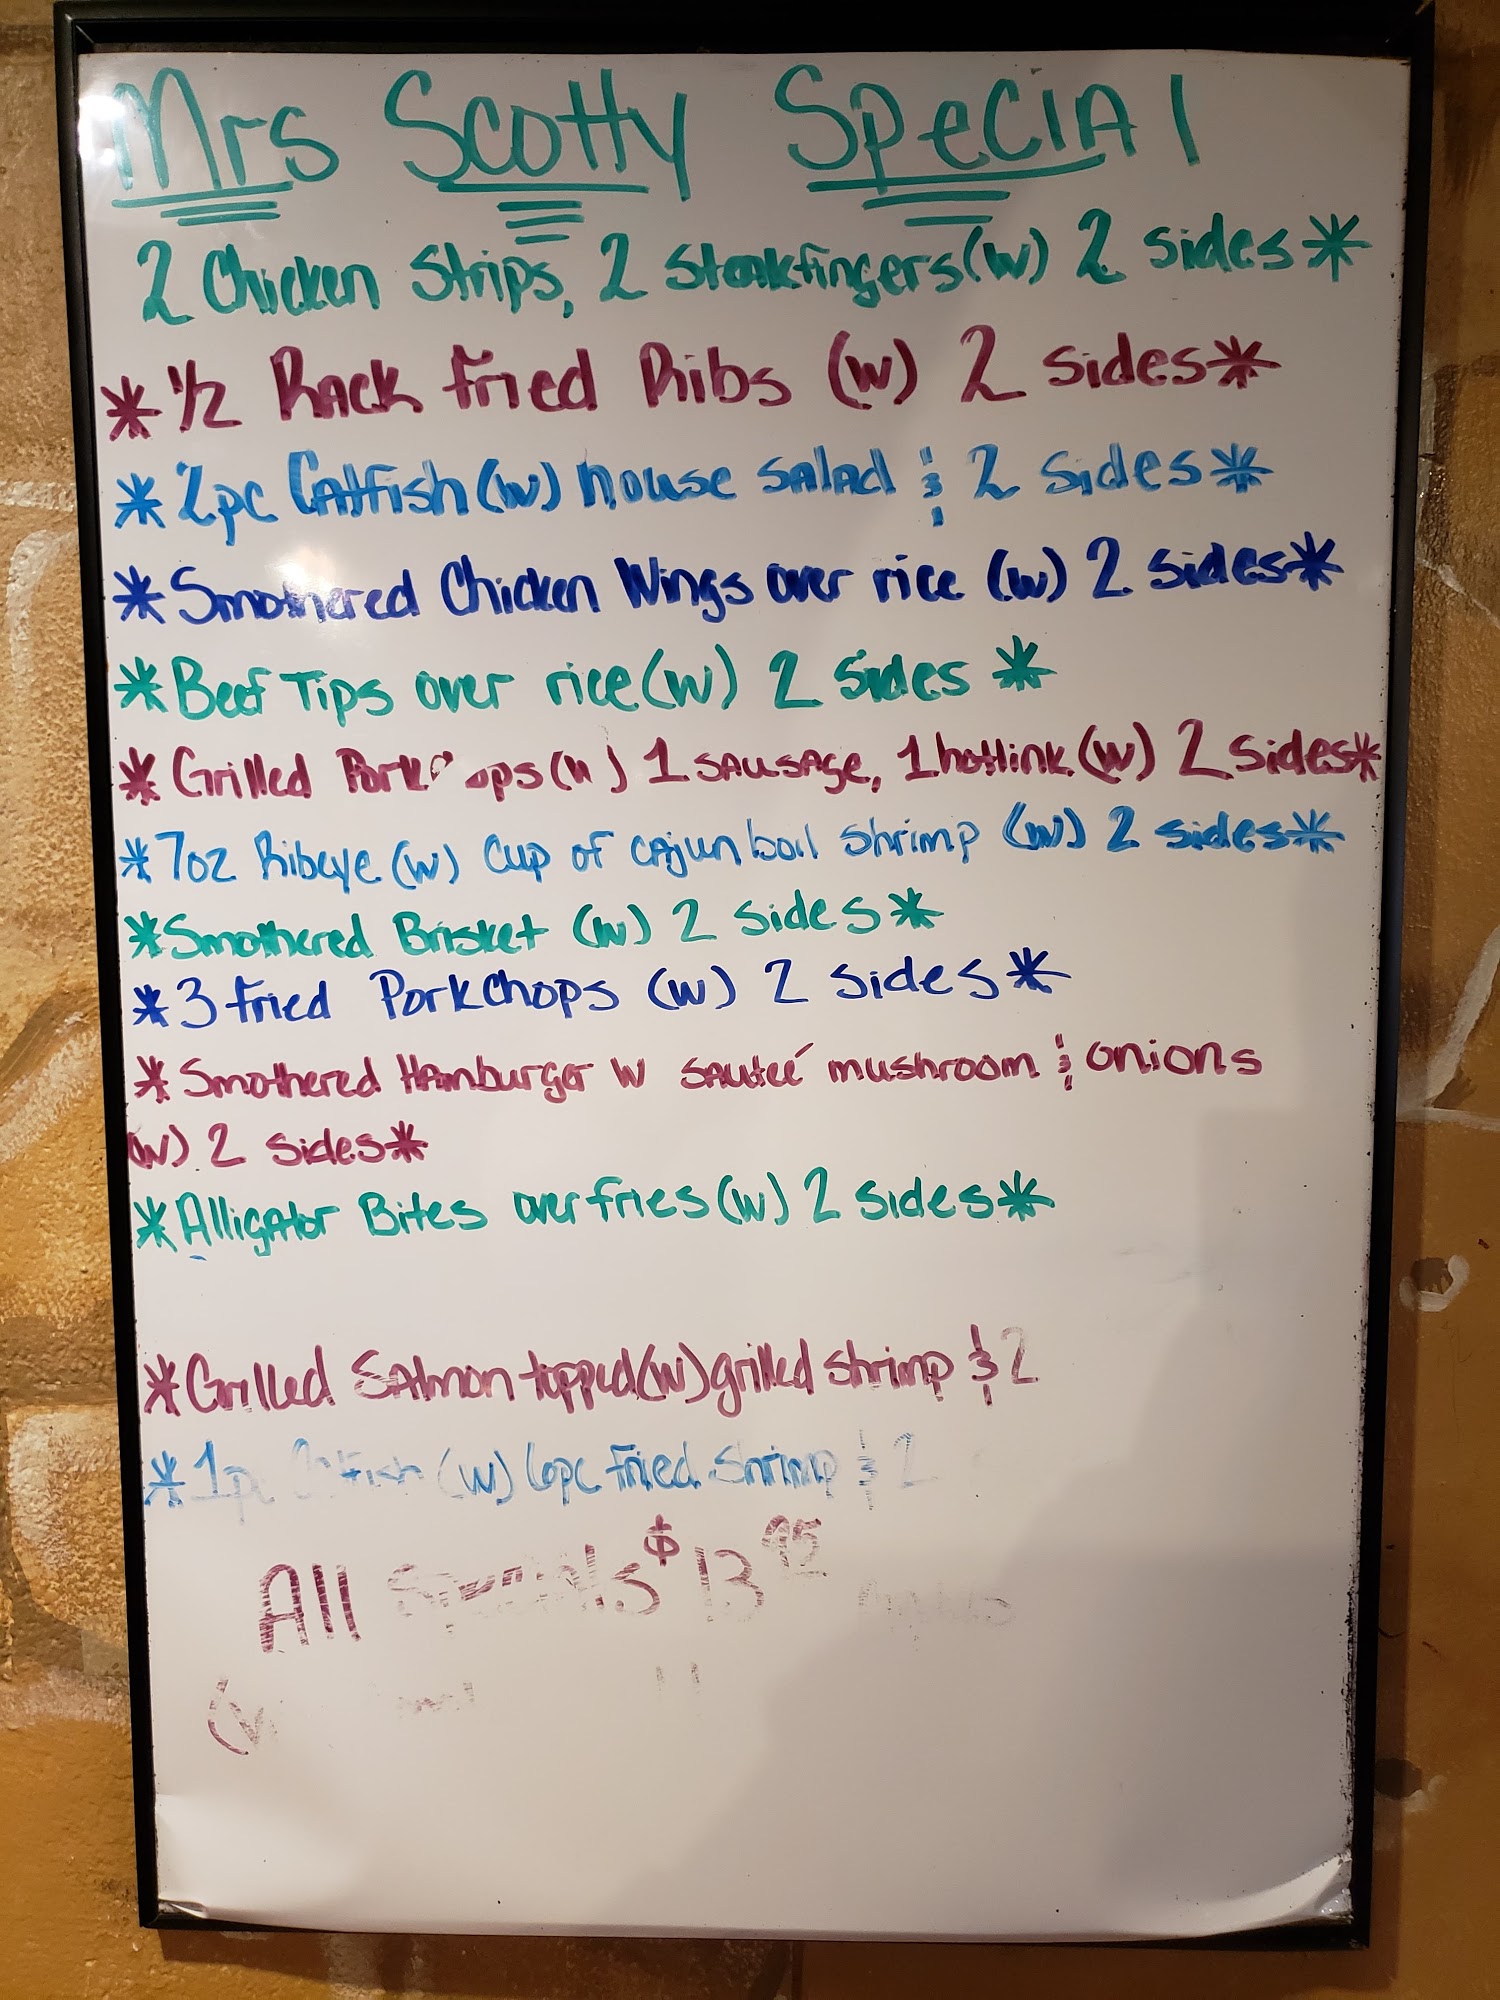 Mrs Scotty Special
2 Chicken Strips, 2 Steakfingers(w) 2 sides*
*1/2 Rack Fried Ribs (w) 2 sides*
*2pc Catfish(w) house salad & 2 sides*
*Smothered Chicken Wings over rice (w) 2 sides*
*Beef Tips over rice(w) 2 sides *
*Grilled Pork ops(w) 1 sausage, 1 hotlink (w) 2 sides*
*7oz Ribeye (w) Cup of cajun boil shrimp (w) 2 sides*
*Smothered Brisket (w) 2 sides*
*3 fried PorkChops (w) 2 sides*
*Smothered Hamburger W sauteé mushroom & onions
(w) 2 sides*
*Alligator Bites over fries(w) 2 sides*
*Grilled Salmon topped(w)grilled shrimp & 2
*1pc Catfish (w) 6pc fried shrimp & 2
All Specials $13